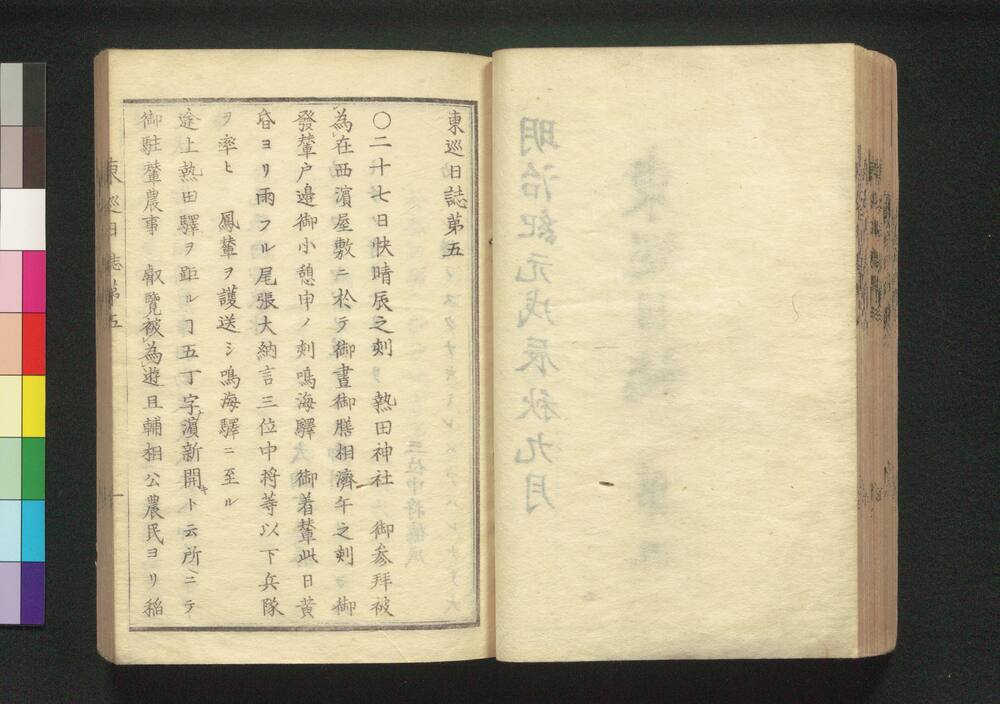 明治紀元戊辰秋九月
東巡日誌第五
〇二十七日快晴辰之刻　熱田神社　御参拝被
為在西濱屋敷ニ於テ御晝御膳相濟午之刻　御
發輦戸邊御小憩申ノ刻鳴海驛　御着輦此日黄
昏ヨリ雨フル尾張大納言三位中将等以下兵隊
ヲ率ヒ　鳳輦ヲ護送シ鳴海驛ニ至ル
途上熱田驛ヲ距ルヿ五丁字濵新開ト云所ニテ
御駐輦農事　叡覽被為遊且輔相公農民ヨリ稲
東巡日誌第五
一